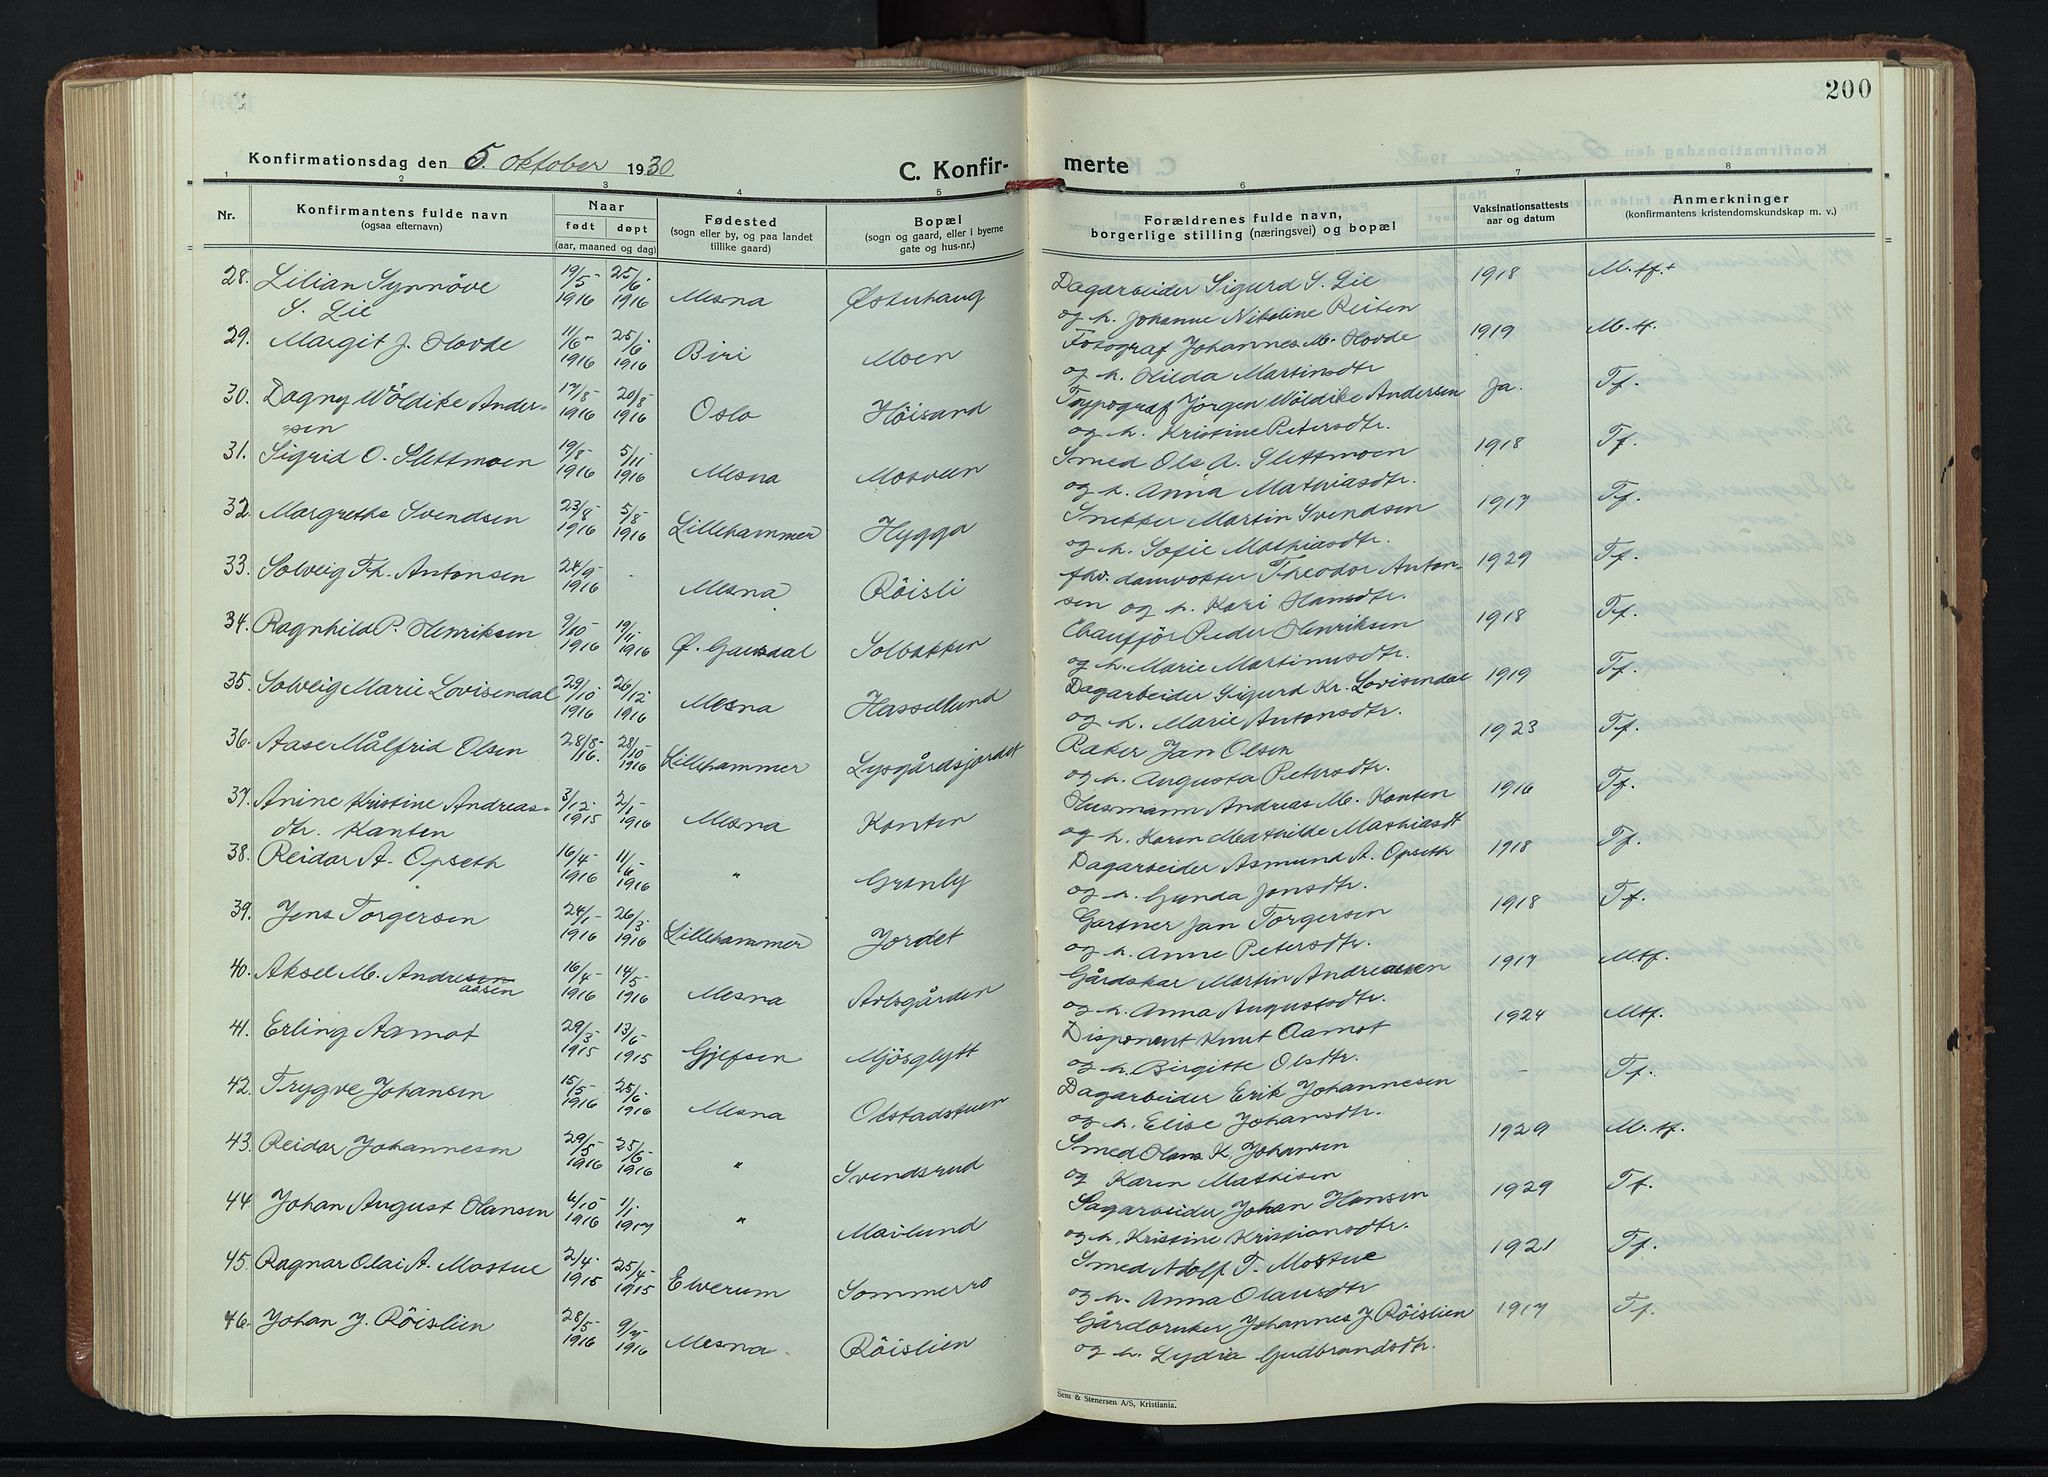 200
Konfirmationsdag den 5. oktober 1930
C. Konfir- merte
1 2 3 4 5 6 7 8
Nr. Konfirmantens fulde navn (ogsaa efternavn) Naar født døpt (aar, maaned og dag) Fødested (sogn eller by, og paa landet tillike gaard) Bopæl (sogn og gaard, eller i byerne gate og hus-nr.) Forældrenes fulde navn, borgerlige stilling (næringsvei) og bopæl Vaksinationsattests aar og datum Anmerkninger (konfirmantens kristendomskundskap m. v.)
28. Lilian Synnöve S. Lie 19/5- 1916 25/6- 1916 Mesna Østerhaug Dagarbeider Sigurd S. Lie og h. Johanne Nikoline Reiten 1918 M.tf.+
29. Margit J. Hovde 11/6- 1916 25/6- 1916 Biri Moen Fotograf Johannes M. Hovde og h. Hilda Martinsdtr 1919 M.tf.
30. Dagny Wöldike Andersen 17/5- 1916 20/8 1916 Oslo Höisand Typograf Jörgen Wöldike Andersen og h. Kristine Petersdtr. Ja. Tf.
31. Sigrid O. Slettmoen 19/8- 1916 5/11- 1916 Mesna Mosveen Smed Ole A. Slettmoen og h. Anna Mathiasdtr. 1918 Tf.
32. Margrethe Svendsen 23/8- 1916 5/8- 1916 Lillehammer Hygga Snekker Martin Svendsen og h. Sofie Mathiasdtr. 1917 Tf.
33. Solveig Th. Antonsen 24/9- 1916 - Mesna Röisli fhv. damvokter Theodor Antonsen og h. Kari Hansdtr. 1929 Tf.
34. Ragnhild P. Henriksen 9/10- 1916 19/11- 1916 Ø. Gausdal Solbakken Chaufför Peder Henriksen og h. Marie Martinusdtr. 1918 Tf.
35. Solveig Marie Lovisendal 29/10 1916 26/12 1916 Mesna Hassellund Dagarbeider Sigurd Kr. Lovisendal og h. Marie Antonsdtr. 1919 Tf.
36. Aase Målfrid Olsen 28/8- 1916. 28/10- 1916 Lillehammer Lysgårdsjordet Baker Jan Olsen og h. Augusta Petersdtr. 1923 Tf.
37. Anine Kristine Andreasdtr. Kanten 3/12- 1915 2/1- 1916 Mesna Kanten Husmann Andreas M. Kanten og h. Karen Mathilde Mathiasdt 1916 Tf.
38. Reidar A. Opseth 16/4- 1916 11/6 1916 " Granly Dagarbeider Asmund A. Opseth og h. Gunda Jonsdtr. 1918 Tf.
39. Jens Torgersen 24/1- 1916 26/3 1916 Lillehammer Jordet Gartner Jan Torgersen og h. Anne Petersdtr. 1918 Tf.
40. Aksel M. Andresen aasen 16/4- 1916 14/5 1916 Mesna Avlsgården Gårdskar Martin Andreassen og h. Anna Augustsdtr. 1917 Mtf.
41. Erling Aamot 29/3- 1915 13/6 1915 Gjefsen Mjösglytt Disponent Knut Aamot og h. Birgitte Olsdtr. 1924 Mtf.
42. Trygve Johansen 15/5- 1916 25/6- 1916 Mesna Olstadstuen Dagarbeider Erik Johannesen og h. Elise Johansdtr. - Tf.
43. Reidar Johannesen 29/5- 1916 25/6- 1916 " Svendsrud Smed Olans K. Johansen og Karen Mathisen 1929 M.tf.
44. Johan August Olansen 6/10 1916 1/1- 1917 " Mailund Sagarbeider Johan Hansen og h. Kristine Kristiansdtr. 1929 Tf.
45. Ragnar Olai A. Mostue 2/4- 1915 25/4- 1915 Elverum Sommerro Smed Adolf T. Mostue og h. Anna Olausdtr 1921 Tf.
46. Johan J. Röislien 28/5- 1916 9/7- 1916 Mesna Röislien Gårdbruker Johannes J. Röislien og h. Lydia Gudbrandsdtr. 1917 Tf.
Sem & Stenersen A/S, Kristiania.